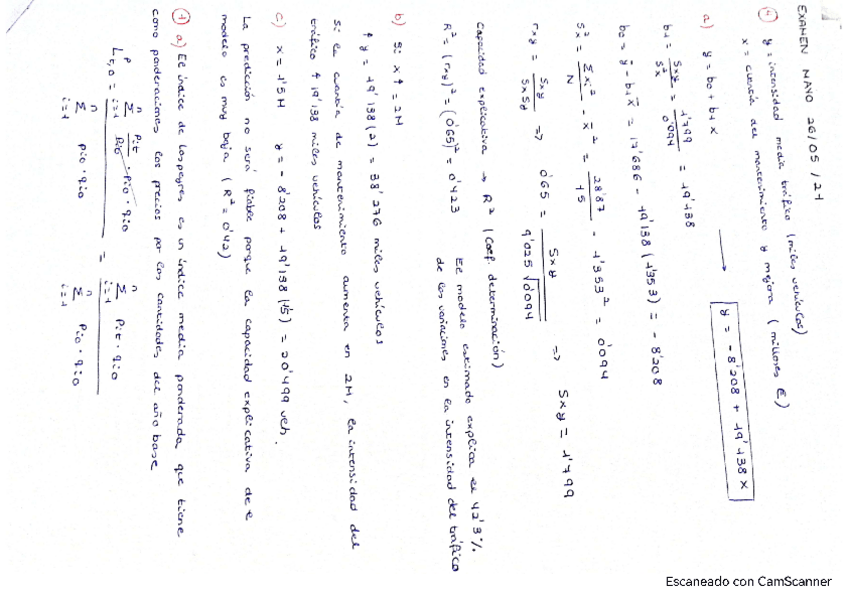 EXAMEN MAYO 26/05/21
④ y = intensidad media tráfico (miles vehículos)
x = cuantía del mantenimiento y mejora (millones €)
a) y = b0 + b1x → y = -8'208 + 19'138x
b1 = Sxy / S²x = 1'799 / 0'094 = 19'138
b0 = ȳ - b1x̄ = 17'686 - 19'138 (1'353) = -8'208
S²x = Σxi² / N - x̄² = 28'87 / 15 - 1'353² = 0'094
rxy = Sxy / SxSy => 0'65 = Sxy / 9'025 √0'094 => Sxy = 1'799
Capacidad explicativa → R² (Coef. determinación)
R² = (rxy)² = (0'65)² = 0'423 El modelo estimado explica el 42'3%
de las variaciones en la intensidad del tráfico
b) Si x ↑ = 2M
↑ y = 19'138 (2) = 38'276 miles vehículos
Si la cuantía de mantenimiento aumenta en 2M, la intensidad del
tráfico ↑ 19'138 miles vehículos
c) x = 1'5M y = -8'208 + 19'138 (1'5) = 20'499 veh.
La predicción no será fiable porque la capacidad explicativa de e
modelo es muy baja (R² = 0'42)
① a) El índice de Laspeyres es un índice media ponderada que tiene
como ponderaciones los precios por las cantidades del año base
L^p t,0 = Σ(i=1, n) Pit / Pio · Pio · qio / Σ(i=1, n) pio · qio = Σ(i=1, n) Pit · qio / Σ(i=1, n) Pio · qio
Escaneado con CamScanner